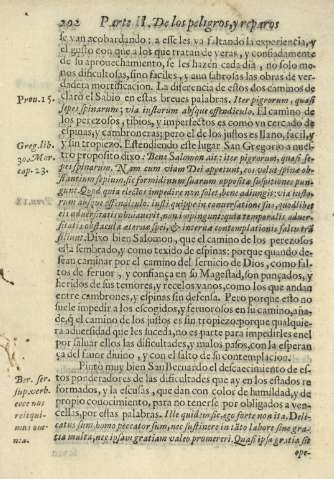 202 Parte II. De los peligros, y reparos
se van acobardando: a esse les va faltando la experiencia, y
el gusto con que a los que tratan de veras, y confiadamente
de su aprovechamiento, se les hazen cada dia, no solo me-
nos dificultosas, sino faciles, y aun sabrosas las obras de ver-
dadera mortificacion. La diferencia de estos dos caminos de-
Prou. 15.
claró el Sabio en estas breves palabras. Iter pigrorum, quasi
sepes spinarum; via iustorum absque offendiculo. El camino de
los perezosos, tibios, y imperfectos es como vn cercado de
espinas, y cambroneras; pero el de los justos es llano, facil, y
Greg. lib.
30. Mor.
cap. 23.
y sin tropiezo. Estendiendo este lugar San Gregorio a nues-
tro proposito dixo: Bene Salomon ait: iter pigrorum, quasi se-
pes spinarum. Nam cum viam Dei appetunt, eos velut spinæ ob-
stantium sepium, sic formidinum suarum opposita suspitiones pun-
gunt. Quod quia electos impedire non solet, bene adiungit: via iusto-
rum absque offendiculo: iusti quippe in conversatione sua, quodlibet
eis adversitatis obviaverit, non impingunt: quia temporalis adver-
sitatis obstacula æternæ spei, & internæ contemplationis saltu tran-
siliunt. Dixo bien Salomon, que el camino de los perezosos
esta sembrado, y como texido de espinas: porque quando de-
sean caminar por el camino del servicio de Dios, como fal-
tos de fervor, y confiança en su Magestad, son punçados, y
heridos de sus temores, y recelos vanos, como los que andan
entre cambrones, y espinas sin defensa. Pero porque esto no
suele impedir a los escogidos, y fervorosos en su camino, aña-
de, q̃ el camino de los justos es sin tropiezo: porque qualquie-
ra adversidad que les suceda, no es parte para impedirles en el
por saluar ellos las dificultades, y malos pasos, con la esperan
ça del fauor divino, y con el salto de su contemplacion.
Pintó muy bien San Bernardo el descaecimiento de es-
Ber. ser.
sup. verb.
ecce nos
reliqui-
mus om-
nia.
tos ponderadores de las dificultades que ay en los estados re
formados, y la escusas, que dan con color de humildad, y de
propio conocimiento, para no tenerse por obligados a ven-
cellas, por estas palabras. Ille quidem sic, ego forte non ita. Deli-
catus sum, homo peccator sum, nec sustinere in tãto labore sine gra-
tia multa, nec ipsam gratiam valeo promereri. Quasi ipsa gratia sit
ope-